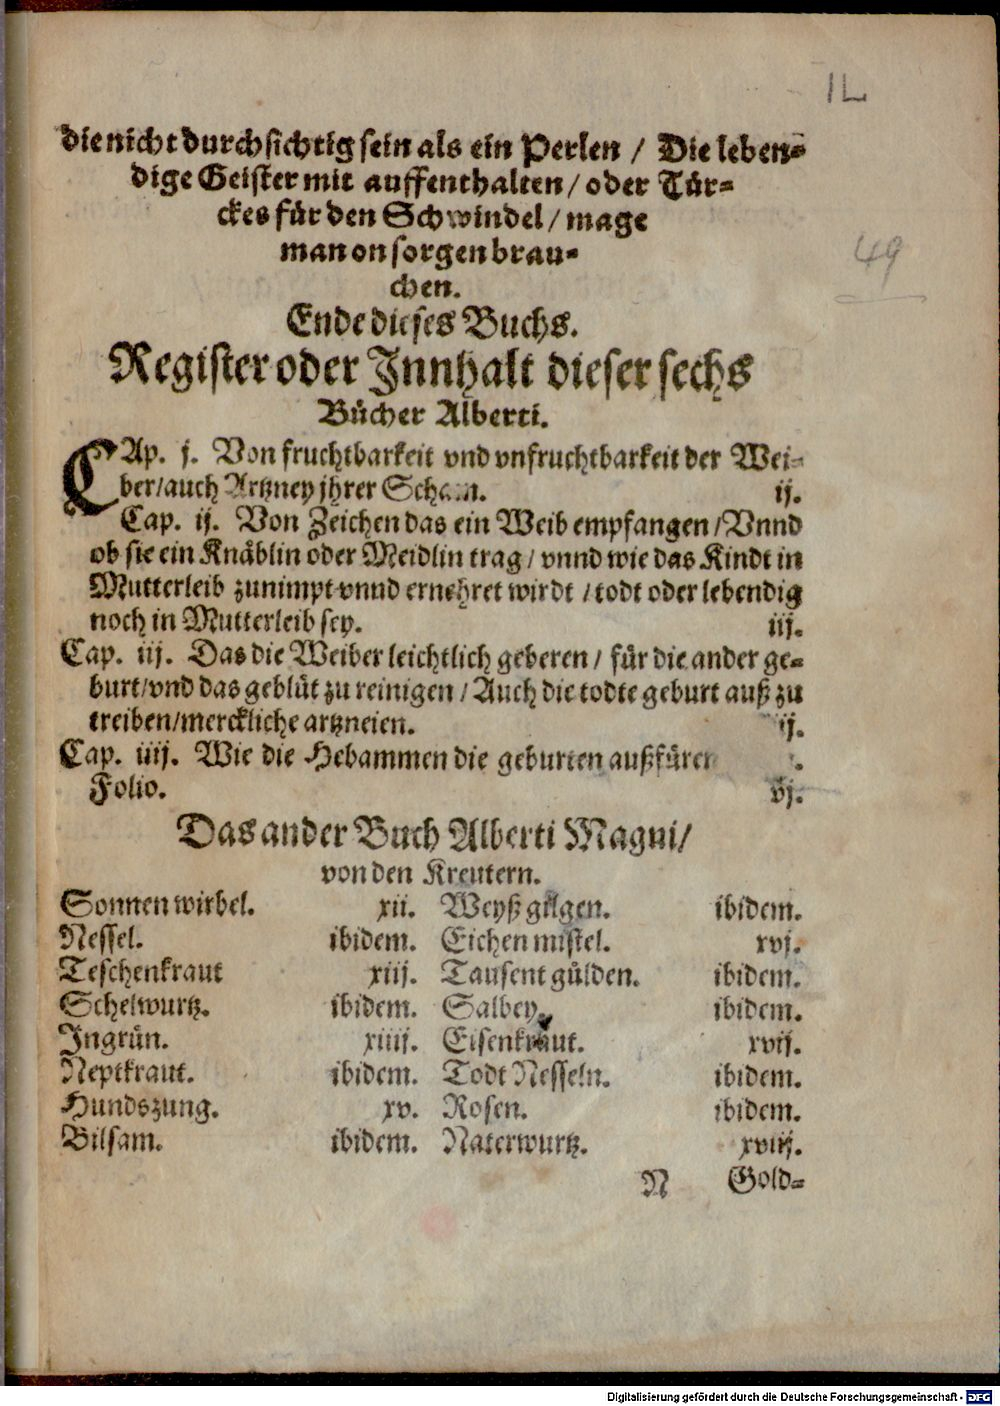 IL
die nicht durchsichtig sein als ein Perlen / Die leben-
dige Geister mit auffenthalten / oder Tür-
ckes für den Schwindel / mage
man on sorgen brau-
chen.
49
Ende dieses Buchs.
Register oder Innhalt dieser sechs
Bücher Alberti.
CAp. j. Von fruchtbarkeit vnd vnfruchtbarkeit der Wei-
ber/auch Artzney jhrer Scham. ij.
Cap. ij. Von Zeichen das ein Weib empfangen / Vnnd
ob sie ein Knäblin oder Meidlin trag / vnnd wie das Kindt in
Mutterleib zunimpt vnnd ernehret wirdt / todt oder lebendig
noch in Mutterleib sey. iij.
Cap. iij. Das die Weiber leichtlich geberen / für die ander ge-
burt/vnd das geblüt zu reinigen / Auch die todte geburt auß zu
treiben/merckliche artzneien. ij.
Cap. iiij. Wie die Hebammen die geburten außfüren
Folio. vj.
Das ander Buch Alberti Magni/
von den Kreutern.
Sonnen wirbel. xii. Weyß gilgen. ibidem.
Nessel. ibidem. Eichen mistel. xvj.
Teschenkraut xiij. Tausent gülden. ibidem.
Schelwurtz. ibidem. Salbey. ibidem.
Ingrün. xiiij. Eisenkraut. xvij.
Neptkraut. ibidem. Todt Nesseln. ibidem.
Hundszung. xv. Rosen. ibidem.
Bilsam. ibidem. Naterwurtz. xviij.
N Gold-
Digitalisierung gefördert durch die Deutsche Forschungsgemeinschaft - DFG